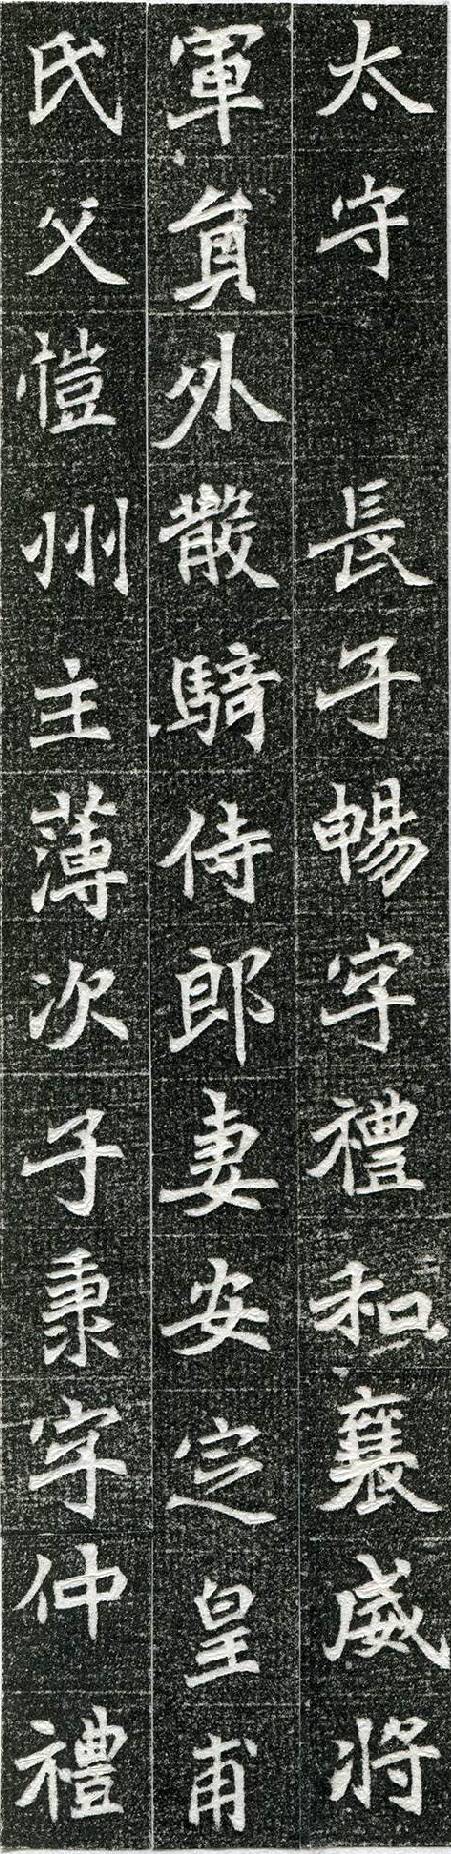 太守 長子暢字禮和襄威將
軍員外散騎侍郎妻安定皇甫
氏父愷州主薄次子秉字仲禮